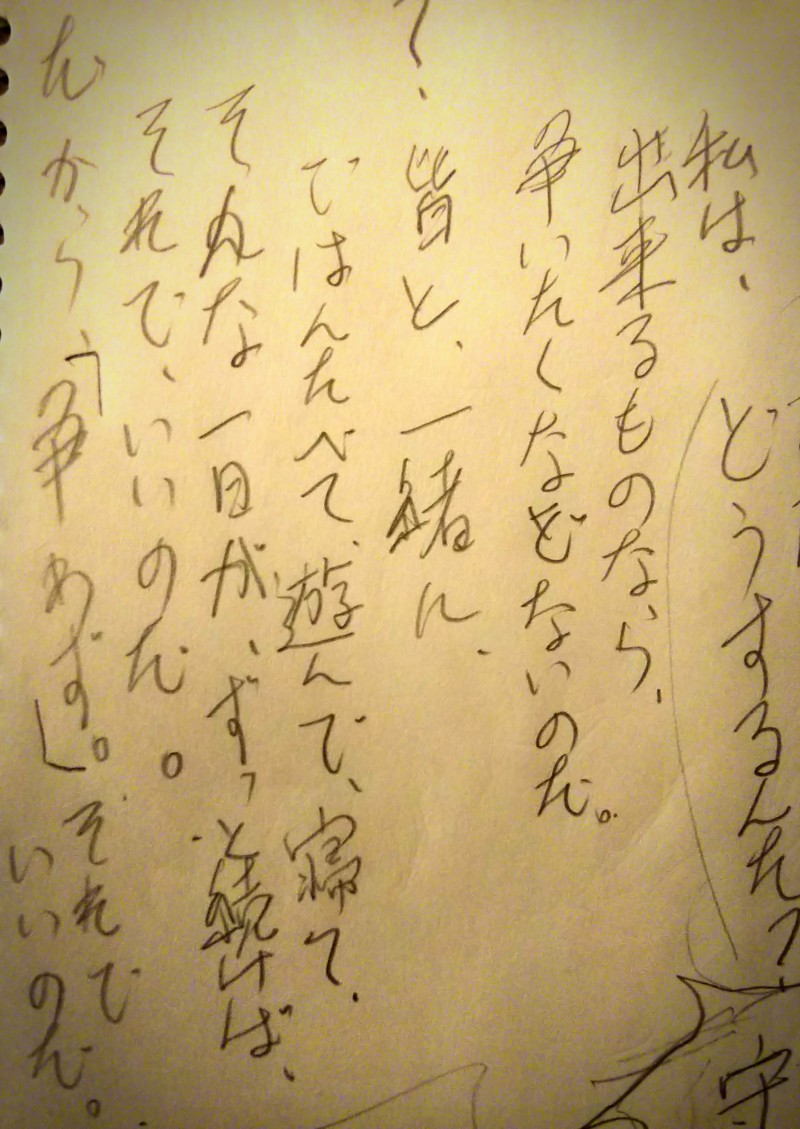 どうするんだ? 守
私は、
出来るものなら、
争いたくなどないのだ。
皆と、一緒に、
ごはんたべて、遊んで、寝て、
そんな一日が、ずっと続けば、
それで、いいのだ。
だから、「争わず」。それで
いいのだ。